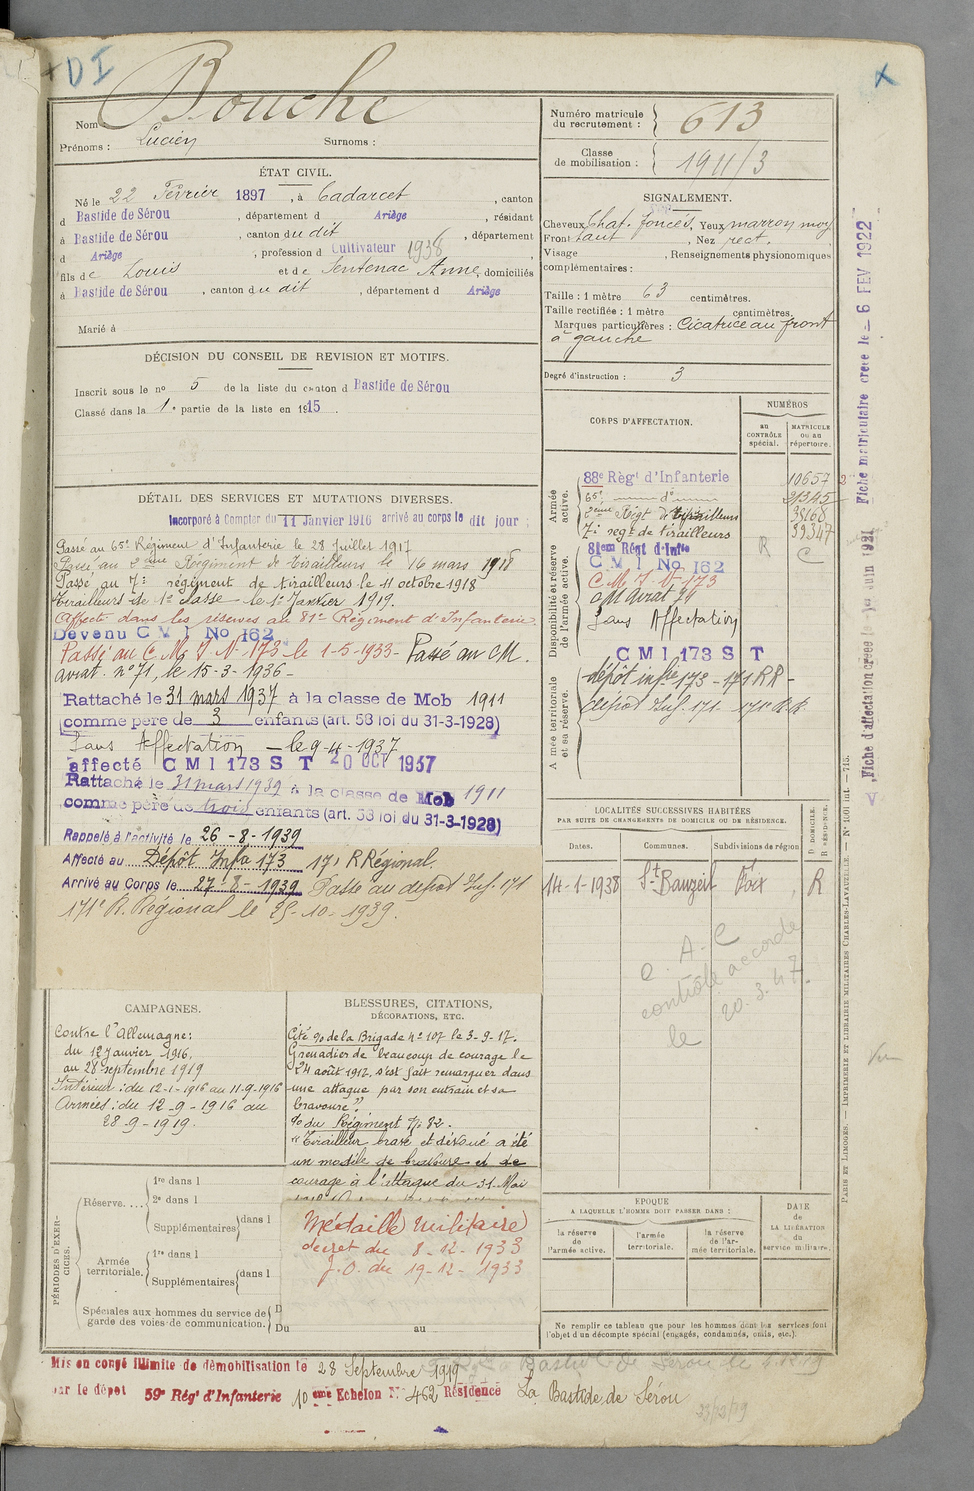 DI
Nom Bouche
Prénoms : Lucien Surnoms :
Numéro matricule du recrutement : 613
Classe de mobilisation : 1911/3
ÉTAT CIVIL.
Né le 22 Février 1897, à Cadarcet, canton
d Bastide de Sérou, département d Ariège, résidant
à Bastide de Sérou, canton du dit, département
d Ariège, profession d Cultivateur 1938
fils de Louis et de Sentenac Anne, domiciliés
à Bastide de Sérou, canton du dit, département d Ariège
Marié à
DÉCISION DU CONSEIL DE REVISION ET MOTIFS.
Inscrit sous le no 5 de la liste du canton d Bastide de Sérou
Classé dans la 1e partie de la liste en 1915.
DÉTAIL DES SERVICES ET MUTATIONS DIVERSES.
Incorporé à Compter du 11 Janvier 1916 arrivé au corps le dit jour
Passé au 65e Régiment d'Infanterie le 28 Juillet 1917
Passé au 2ème Régiment de Tirailleurs le 16 mars 1918
Passé au 7e régiment de tirailleurs le 11 octobre 1918
Tirailleurs de 1e classe le 1er Janvier 1919.
Affecté dans les réserves au 81e Régiment d'Infanterie.
Devenu C M I No 162
Passé au C M I No 173 le 1-5-1933 - Passé au CM.
aviat. no 71, le 15-3-1936 -
Rattaché le 31 mars 1937 à la classe de Mob 1911
comme père de 3 enfants (art. 58 loi du 31-3-1928)
Sans Affectation - le 9-4-1937
affecté C M I 173 S T 20 OCT 1937
Rattaché le 31 mars 1939 à la classe de Mob 1911
comme père de trois enfants (art. 58 loi du 31-3-1928)
Rappelé à l'activité le 26-8-1939
Affecté au Dépôt Infie 173 171 R Régional.
Arrivé au Corps le 27-8-1939 Passé au depot Inf. 171
171e R. Régional le 25-10-1939.
CAMPAGNES.
Contre l'Allemagne:
du 12 Janvier 1916,
au 28 septembre 1919
Intérieur: du 12-1-1916 au 11-9-1916
Armées: du 12-9-1916 au
28-9-1919.
BLESSURES, CITATIONS,
DÉCORATIONS, ETC.
Cité %o de la Brigade No 107 le 3-9-17.
Grenadier de beaucoup de courage le
24 août 1917, s'est fait remarquer dans
une attaque par son entrain et sa
bravoure".
%o du Régiment No 82.
"Tirailleur brave et dévoué a été
un modèle de bravoure et de
courage à l'attaque du 31 Mai
Médaille Militaire
decret du 8-12-1933
J.O. du 19-12-1933
PÉRIODES D'EXERCICES.
Réserve.... 1re dans l
2e dans l
Supplémentaires dans l
Armée territoriale. 1re dans l
Supplémentaires dans l
Spéciales aux hommes du service de garde des voies de communication. D
Du au
SIGNALEMENT.
Cheveux Chat. foncés, Yeux marron moy
Front haut, Nez rect.
Visage, Renseignements physionomiques
complémentaires :
Taille : 1 mètre 63 centimètres.
Taille rectifiée : 1 mètre centimètres.
Marques particulières : Cicatrice au front
à gauche
Degré d'instruction : 3
CORPS D'AFFECTATION.
NUMÉROS
au CONTRÔLE spécial.
MATRICULE ou au répertoire.
Armée active.
88e Régt d'Infanterie 10657
65e do 21345
2ème Régt de tirailleurs 38168
7e regt de tirailleurs 39347
Disponibilité et réserve de l'armée active.
81em Régt d'Infie R C
C M I No 162
C.M.I. No 173
CM Aviat
Sans Affectation
C M I 173 S T
Armée territoriale et sa réserve.
dépôt infie 173 - 171 RR -
dépot Inf. 171 171e R.R.
LOCALITÉS SUCCESSIVES HABITÉES
PAR SUITE DE CHANGEMENTS DE DOMICILE OU DE RÉSIDENCE.
D DOMICILE.
R RÉSIDENCE.
Dates. Communes. Subdivisions de région
14-1-1938 St Bauzeil Foix R
C. A-C
contrôle accordé
le 20.3.47.
EPOQUE
A LAQUELLE L'HOMME DOIT PASSER DANS :
la réserve de l'armée active.
l'armée territoriale.
la réserve de l'armée territoriale.
DATE de LA LIBÉRATION du service militaire.
Ne remplir ce tableau que pour les hommes dont les services font
l'objet d'un décompte spécial (engagés, condamnés, omis, etc.).
Mis en congé illimité de démobilisation le 28 Septembre 1919
par le dépôt 59e Régt d'Infanterie 10eme Echelon No 462 Résidence La Bastide de Sérou
Fiche d'affectation créée le 1er Juin 1921 Fiche matriculaire créée le 6 FEV 1922
PARIS ET LIMOGES. — IMPRIMERIE ET LIBRAIRIE MILITAIRES CHARLES-LAVAUZELLE. — No 1001 int. — 715.